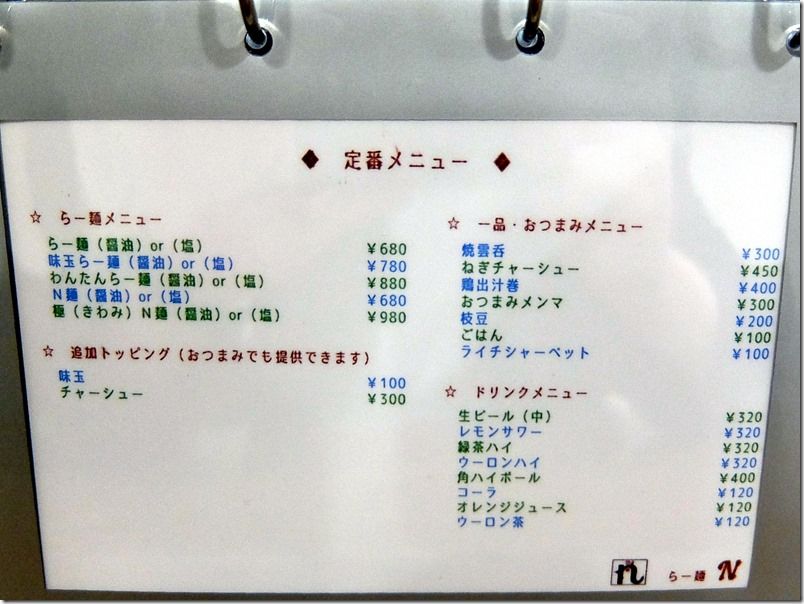 ◆ 定番メニュー ◆
☆ らー麺メニュー
らー麺（醤油）or（塩） ￥680
味玉らー麺（醤油）or（塩） ￥780
わんたんらー麺（醤油）or（塩） ￥880
N麺（醤油）or（塩） ￥680
極（きわみ）N麺（醤油）or（塩） ￥980
☆ 追加トッピング（おつまみでも提供できます）
味玉 ￥100
チャーシュー ￥300
☆ 一品・おつまみメニュー
焼雲呑 ￥300
ねぎチャーシュー ￥450
鶏出汁巻 ￥400
おつまみメンマ ￥300
枝豆 ￥200
ごはん ￥100
ライチシャーベット ￥100
☆ ドリンクメニュー
生ビール（中） ￥320
レモンサワー ￥320
緑茶ハイ ￥320
ウーロンハイ ￥320
角ハイボール ￥400
コーラ ￥120
オレンジジュース ￥120
ウーロン茶 ￥120
らー麺 N